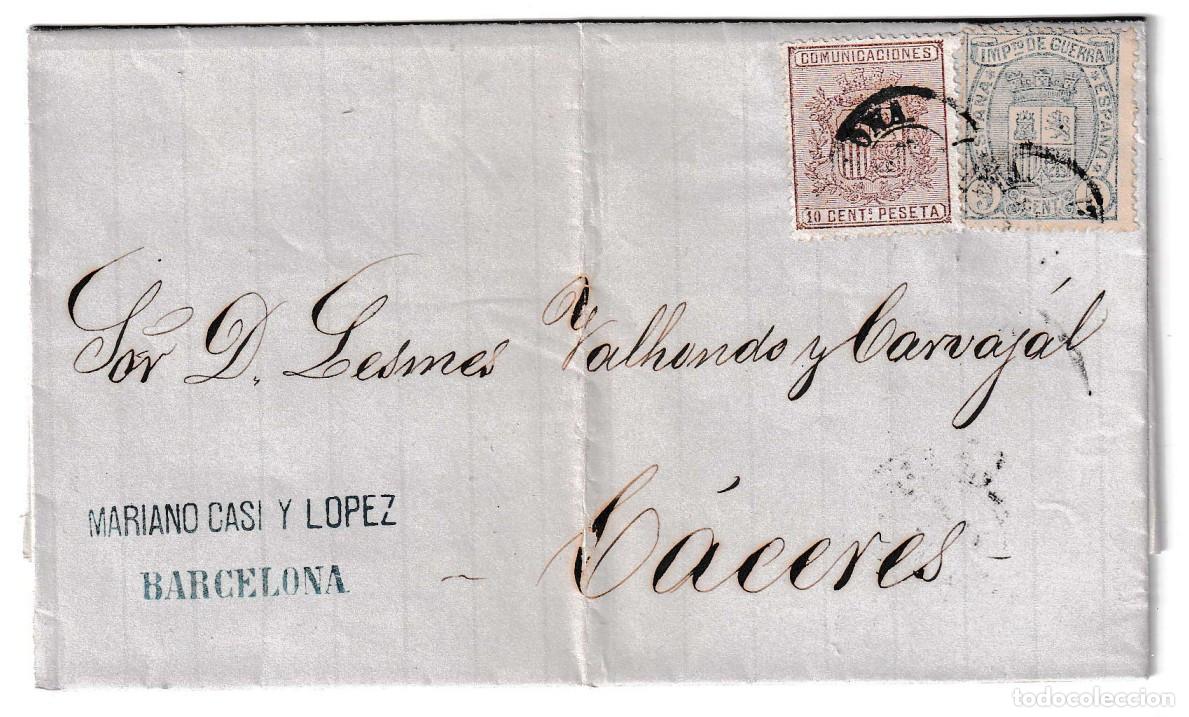 COMUNICACIONES
10 CENTS. PESETA
IMPTO. DE GUERRA
ESPAÑA
ESPAÑA
5 CENT 5
ONA
Sor D. Lesmes Valhondo y Carvajál
MARIANO CASI Y LOPEZ
BARCELONA
- Cáceres -
todocoleccion